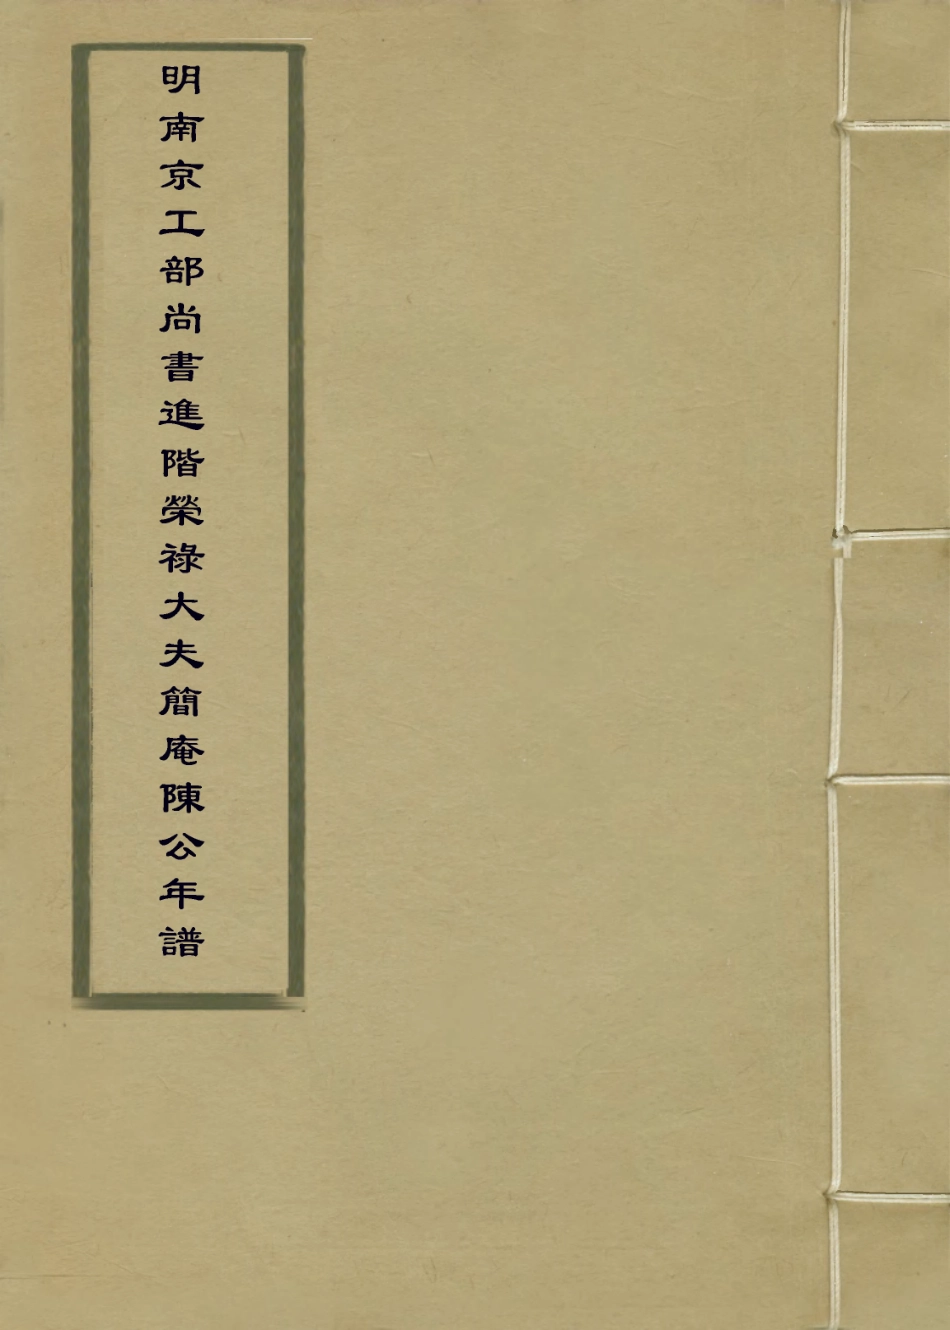 明南京工部尚書進階榮祿大夫簡庵陳公年譜